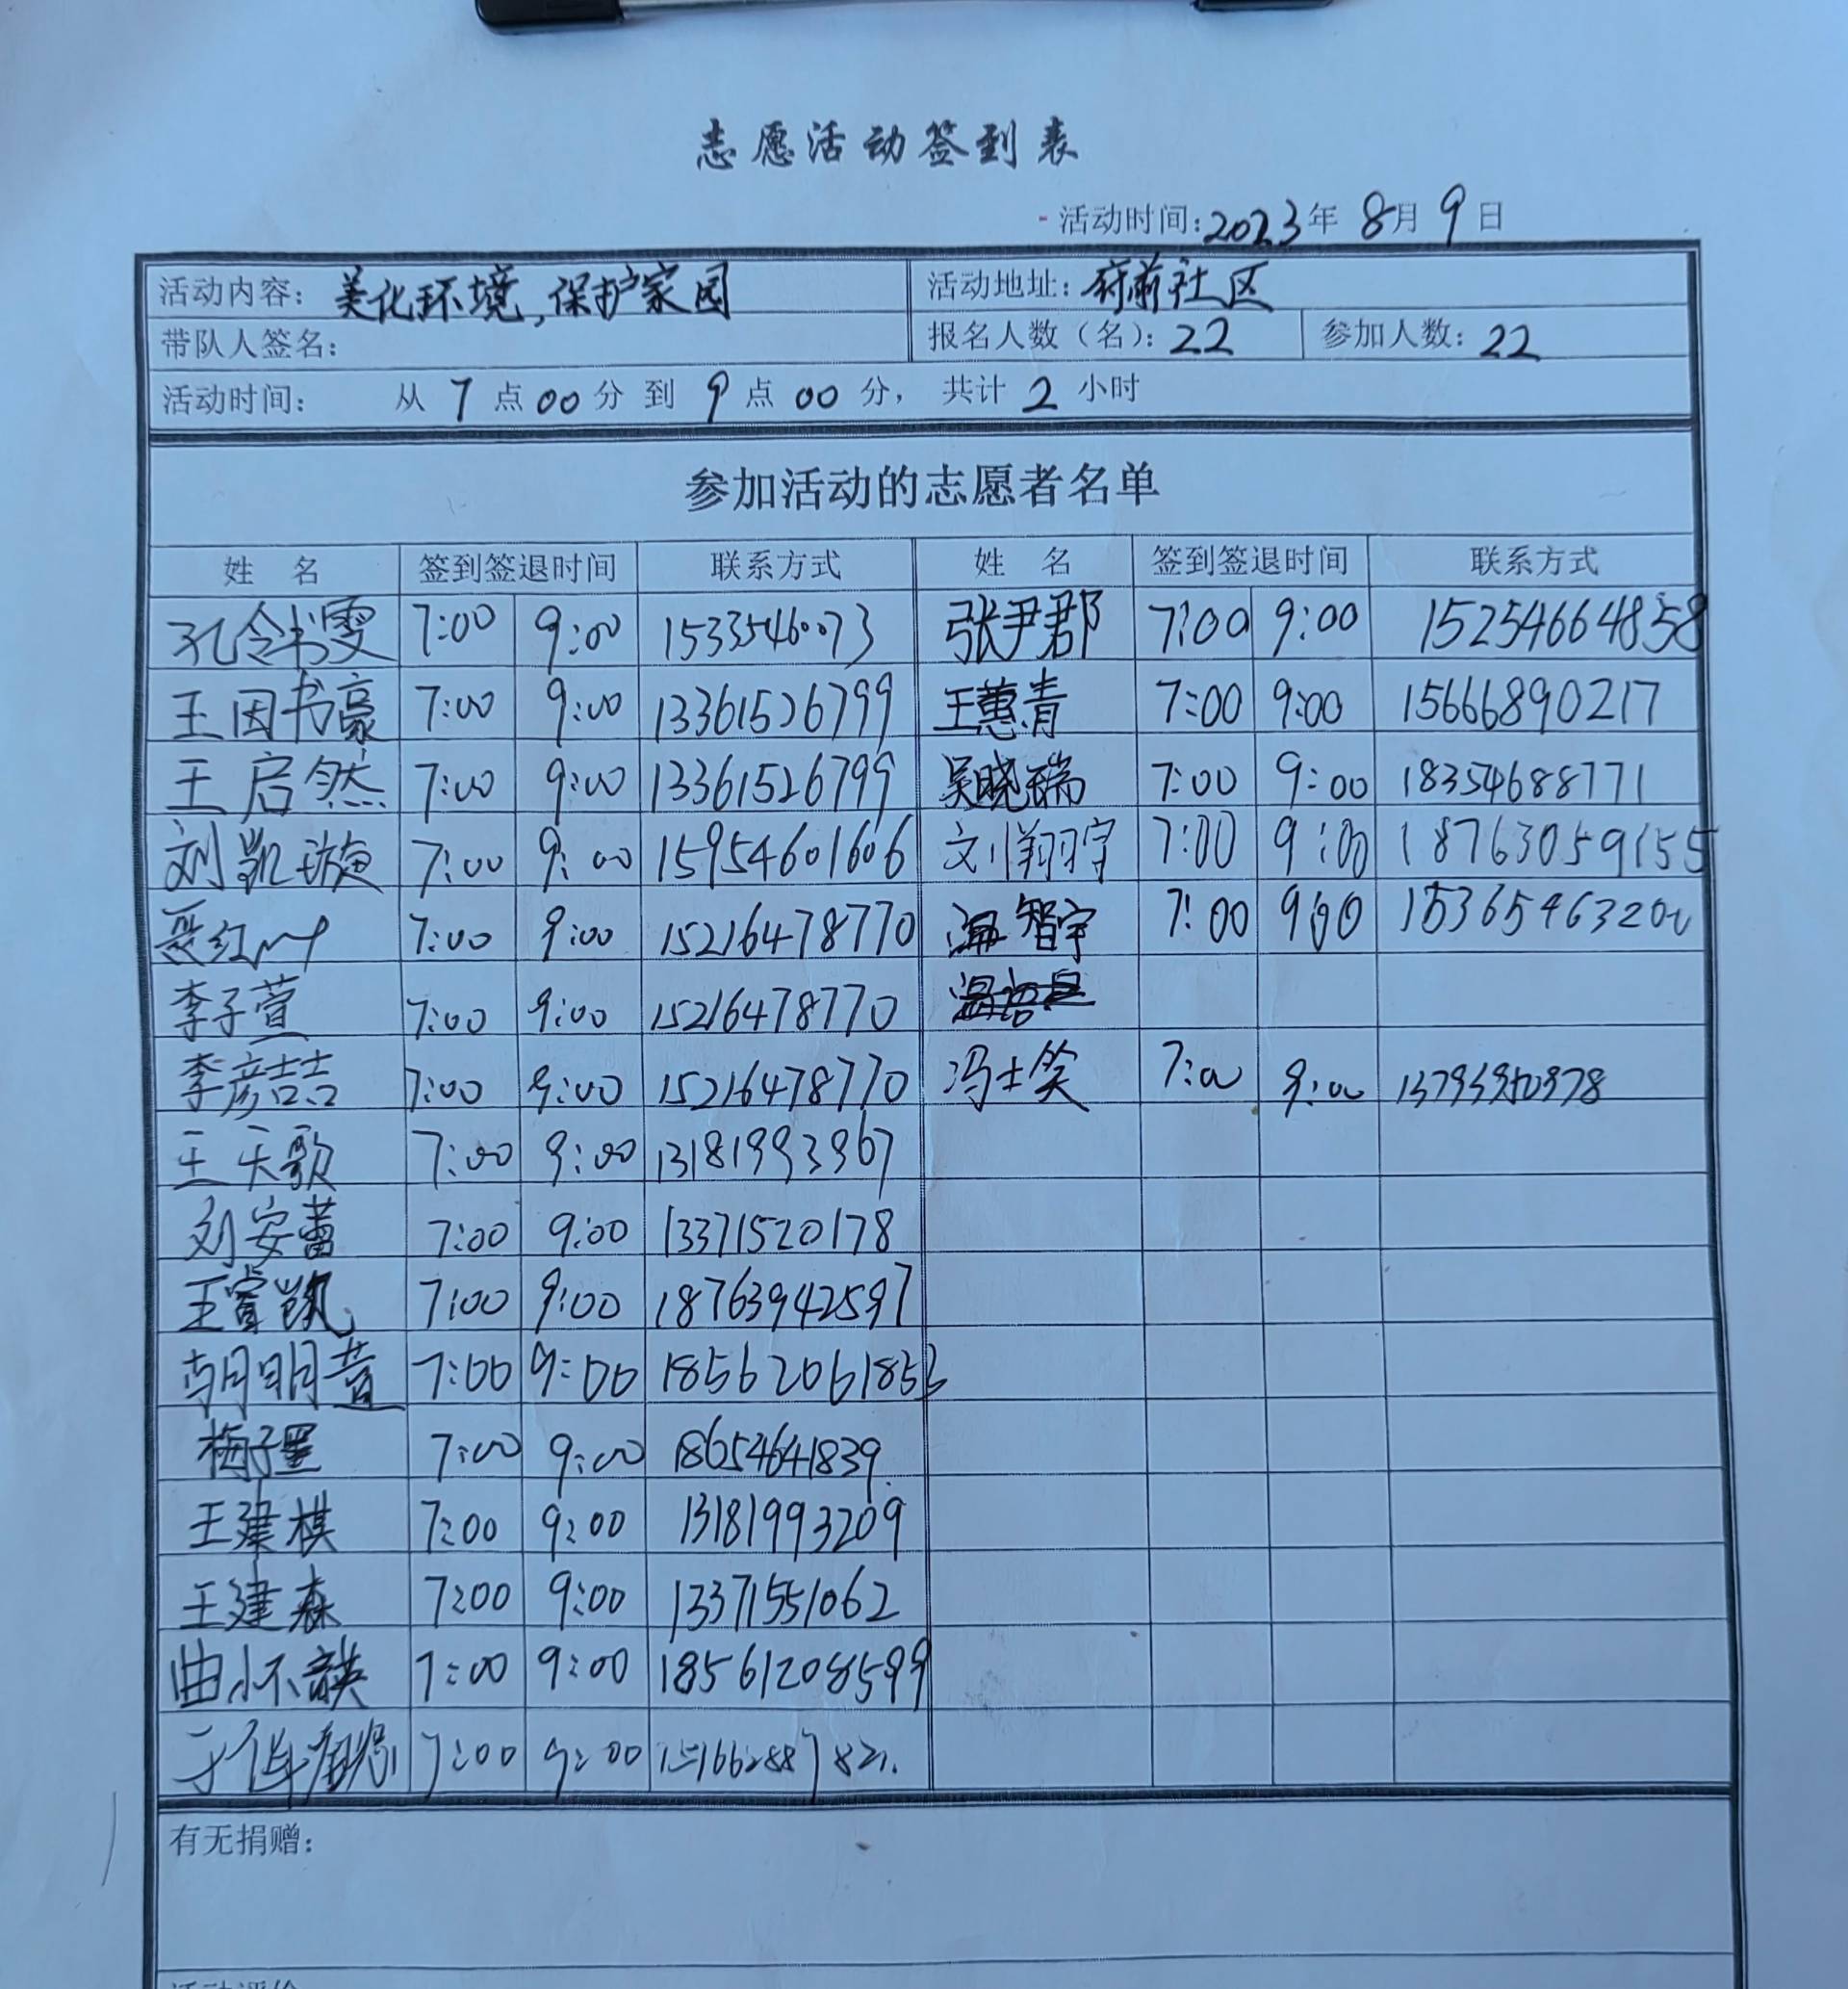 志愿活动签到表
活动时间:2023年8月9日
活动内容:美化环境,保护家园 活动地址:府前社区
带队人签名: 报名人数(名):22 参加人数:22
活动时间: 从7点00分到9点00分,共计2小时
参加活动的志愿者名单
姓 名 签到签退时间 联系方式 姓 名 签到签退时间 联系方式
孔令书雯 7:00 9:00 1533546073 张尹郡 7:00 9:00 15254664858
王因书豪 7:00 9:00 13361526799 王蕙青 7:00 9:00 15666890217
王启然 7:00 9:00 13361526799 吴晓瑞 7:00 9:00 18354688771
刘凯璇 7:00 9:00 15954601606 刘翔宇 7:00 9:00 18763059155
7:00 9:00 15216478770 智宇 7:00 9:00
李子萱 7:00 9:00 15216478770
李彦喆 7:00 9:00 15216478770 冯士笑 7:00 9:00
王天歌 7:00 9:00 13181993967
刘安蕾 7:00 9:00 13371520178
王睿凯 7:00 9:00 18763942597
明萱 7:00 9:00 18562061853
梅子墨 7:00 9:00 18654641839
王建棋 7:00 9:00 13181993209
王建森 7:00 9:00 13371551062
曲怀 7:00 9:00 18561208599
7:00 9:00
有无捐赠: